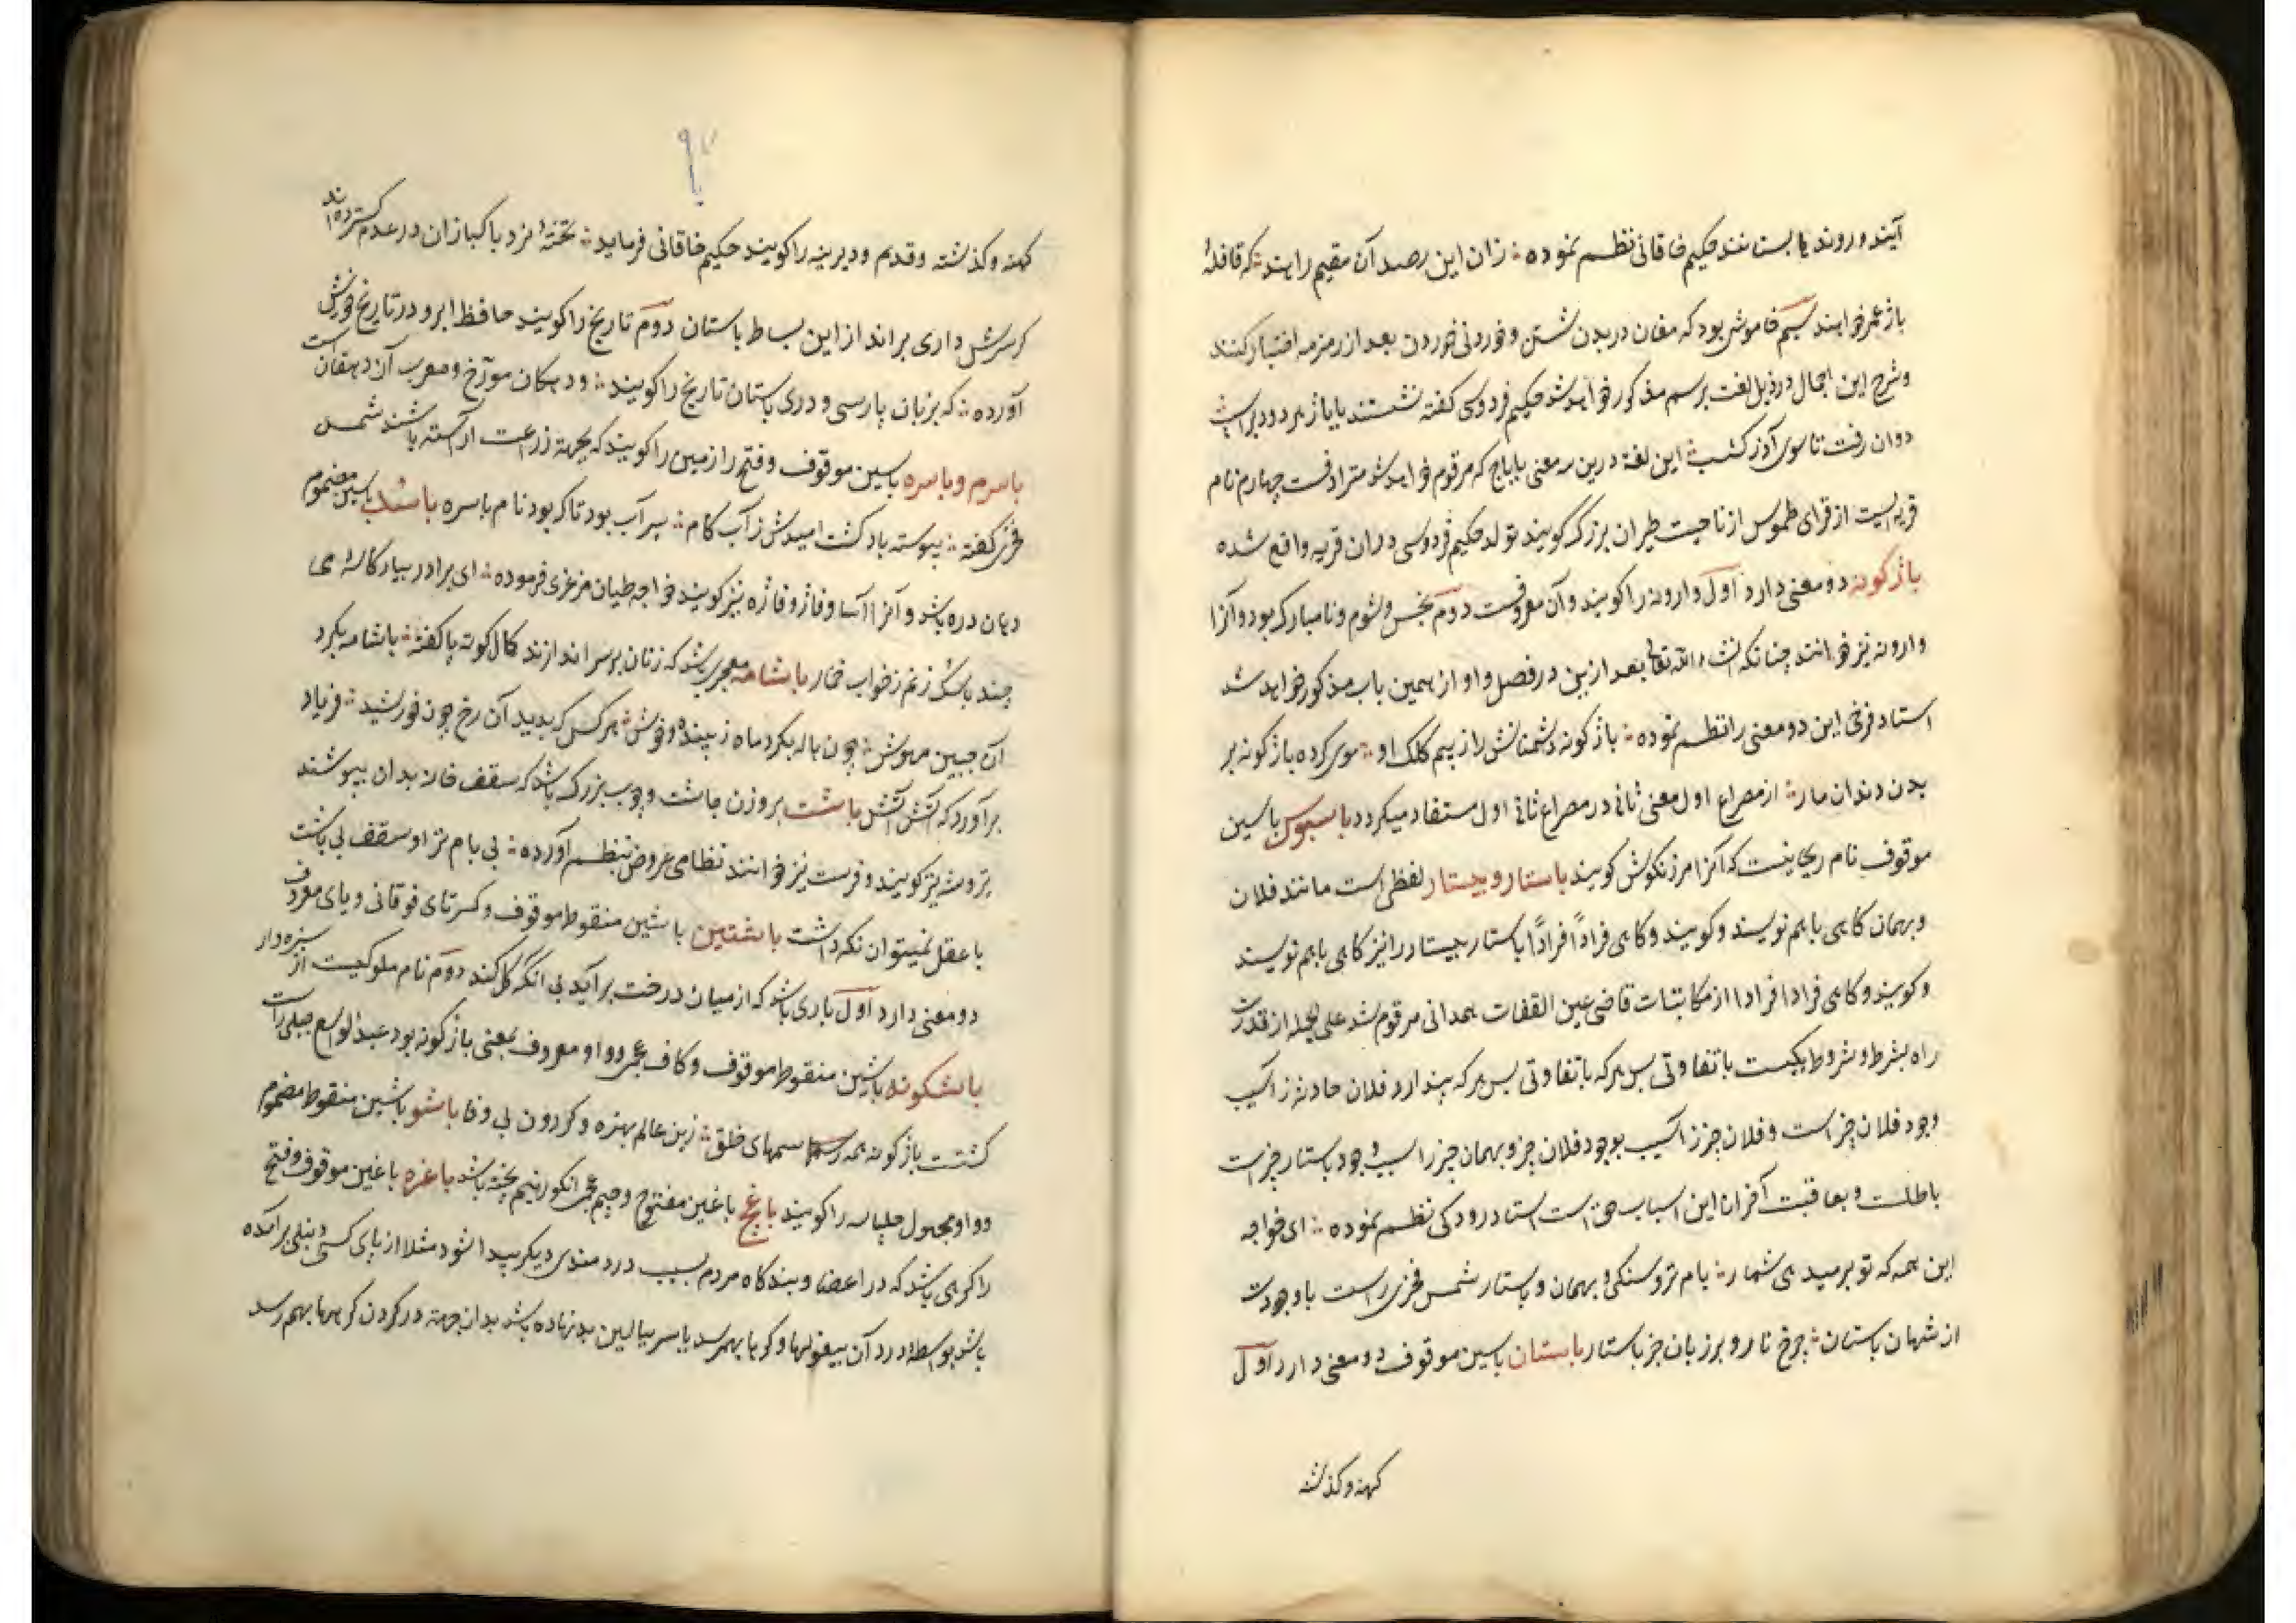 آیند و روند یا بستانند حکیم خاقانی نظم نموده ؞ زان این رصد آن مقیم رایند ؞ که قافلۀ
باز عمر خوانند سیم خاموشی بود که مغان در بدن شستن و خوردنی خوردن بعد از زمزمه اختیار کنند
و شرح این اجمال در ذیل لغت برسم مذکور خواهد شد حکیم فردوسی گفته نشستند با باژ هر دو براسپ
دوان رفت تا سوی آذرکشب ؞ این لغة درین سه معنی با باج که مرقوم خواهد شد مترادفست چهارم نام
قریه ایست از قرای طوس از ناحیت طبران بزرگ گویند تولد حکیم فردوسی در آن قریه واقع شده
باژکونه دو معنی دارد اول وارونه را کویند و آن معروفست دوم نحس و شوم و نامبارک بود و آنرا
وارونه نیز خوانند چنانکه انشاء الله تعالی بعد ازین در فصل واو از همین باب مذکور خواهد شد
استاد فرخی این دو معنی را نظم نموده ؞ باژکونه دشمنانش را ز بیم کلک او ؞ موی کرده باژکونه بر
بدن دندان مار ؞ از مصراع اول معنی ثانی در مصراع ثانی اول مستفاد میکردد باسبوس با سین
موقوف نام ریحانیست که آنرا مرزنکوش کویند باستار و بیستار لفظی است مانند فلان
و بهمان کاهی با هم نویسند و کویند و کاهی فراداً فراداً باستار بیستار را نیز کاهی با هم نویسند
و کویند و کاهی فرادا فرادا از مکاتبات قاضی عین القضات همدانی مرقوم شد علی الجمله از قدرت
راه بشرط و شروط یکیست با تفاوتی پس هر که با تفاوتی پس هر که پندارد فلان حادثه ز اسیب
وجود فلان چیز است و فلان چیز ز اسیب بوجود فلان چیز و بهمان چیز ز اسیب وجود باستار چیز است
باطلست و بعاقبت آخر انا این اسباب حق است استاد رودکی نظم نموده ؞ ای خواجه
این همه که تو بر میدهی شمار ؞ بام تر و سنکی و بهمان و باستار شمس فخری راست با وجودت
از شهان باستان ؞ چرخ نارد بر زبان جز باستار باستان با سین موقوف دو معنی دارد اول
کهنه و کذشته
کهنه و کذشته و قدیم و دیرینه را کویند حکیم خاقانی فرماید ؞ تختۀ نرد پاکبازان در عدم گسترده‌اند
گر سرش داری براند از این بساط باستان دوم تاریخ را کویند حافظ ابرو در تاریخ خویش
آورده ؞ که بزبان پارسی و دری باستان تاریخ را کویند ؞ و دهکان مورّخ و معرب آن دهقان است
باسرم و باسره با سین موقوف و فتح را زمین را کویند که بجهة زراعت آراسته باشند شمس
فخری کفته ؞ پیوسته باد کشت امیدش ز آب کام ؞ سیرآب بود تا که بود نام باسره باسُک با سین مضموم
دهان دره باشد و آنرا آسا و فاژ و فاژه نیز کویند خواجه طیان مرغزی فرموده ؞ ای برادر بیار کاسۀ می
چند باسک زنم ز خواب خمار باشامه معجری باشد که زنان بر سر اندازند کمال کوته پا کفته ؞ باشامه بکرد
آن جبین مهوش ؞ چون هاله بکرد ماه زیبنده و خوش ؞ هر کس که بدید آن رخ چون خورشید ؞ فریاد
برآورد که آتش آتش باشت بر وزن چاشت چوب بزرک باشد که سقف خانه بدان بپوشند
پروشه نیز کویند و فرست نیز خوانند نظامی عروضی بنظم آورده ؞ بی بام نزاد و سقف بی باشت
با عقل نمیتوان نکه داشت باشتین با شین منقوط موقوف و کسر تای فوقانی و یای معروف
دو معنی دارد اول باری باشد که از میان درخت برآید بی آنکه کل کند دوم نام ملوکیست از سبزه‌وار
باشکونه با شین منقوط موقوف و کاف عجمی و واو معروف بمعنی باژکونه بود عبدالواسع جبلی راست
کشتت باژکونه همه رسمهای خلق ؞ زین عالم بهره و کردون بی وفا باشو با شین منقوط مضموم
و واو مجهول چلپاسه را کویند باغج با غین مفتوح و جیم عجمی انکور نیم پخته باشد باغره با غین موقوف و فتح
را کرهی باشد که در اعضا و بندکاه مردم بسبب دردمندی دیکر پیدا شود مثلا از پای کسی دنبلی برآمده
باشد بواسطه درد آن بیغولها و کرها بهم رسد یا سر ببالین بد نهاده باشد بدان جهة در کردن کرهها بهم رسد